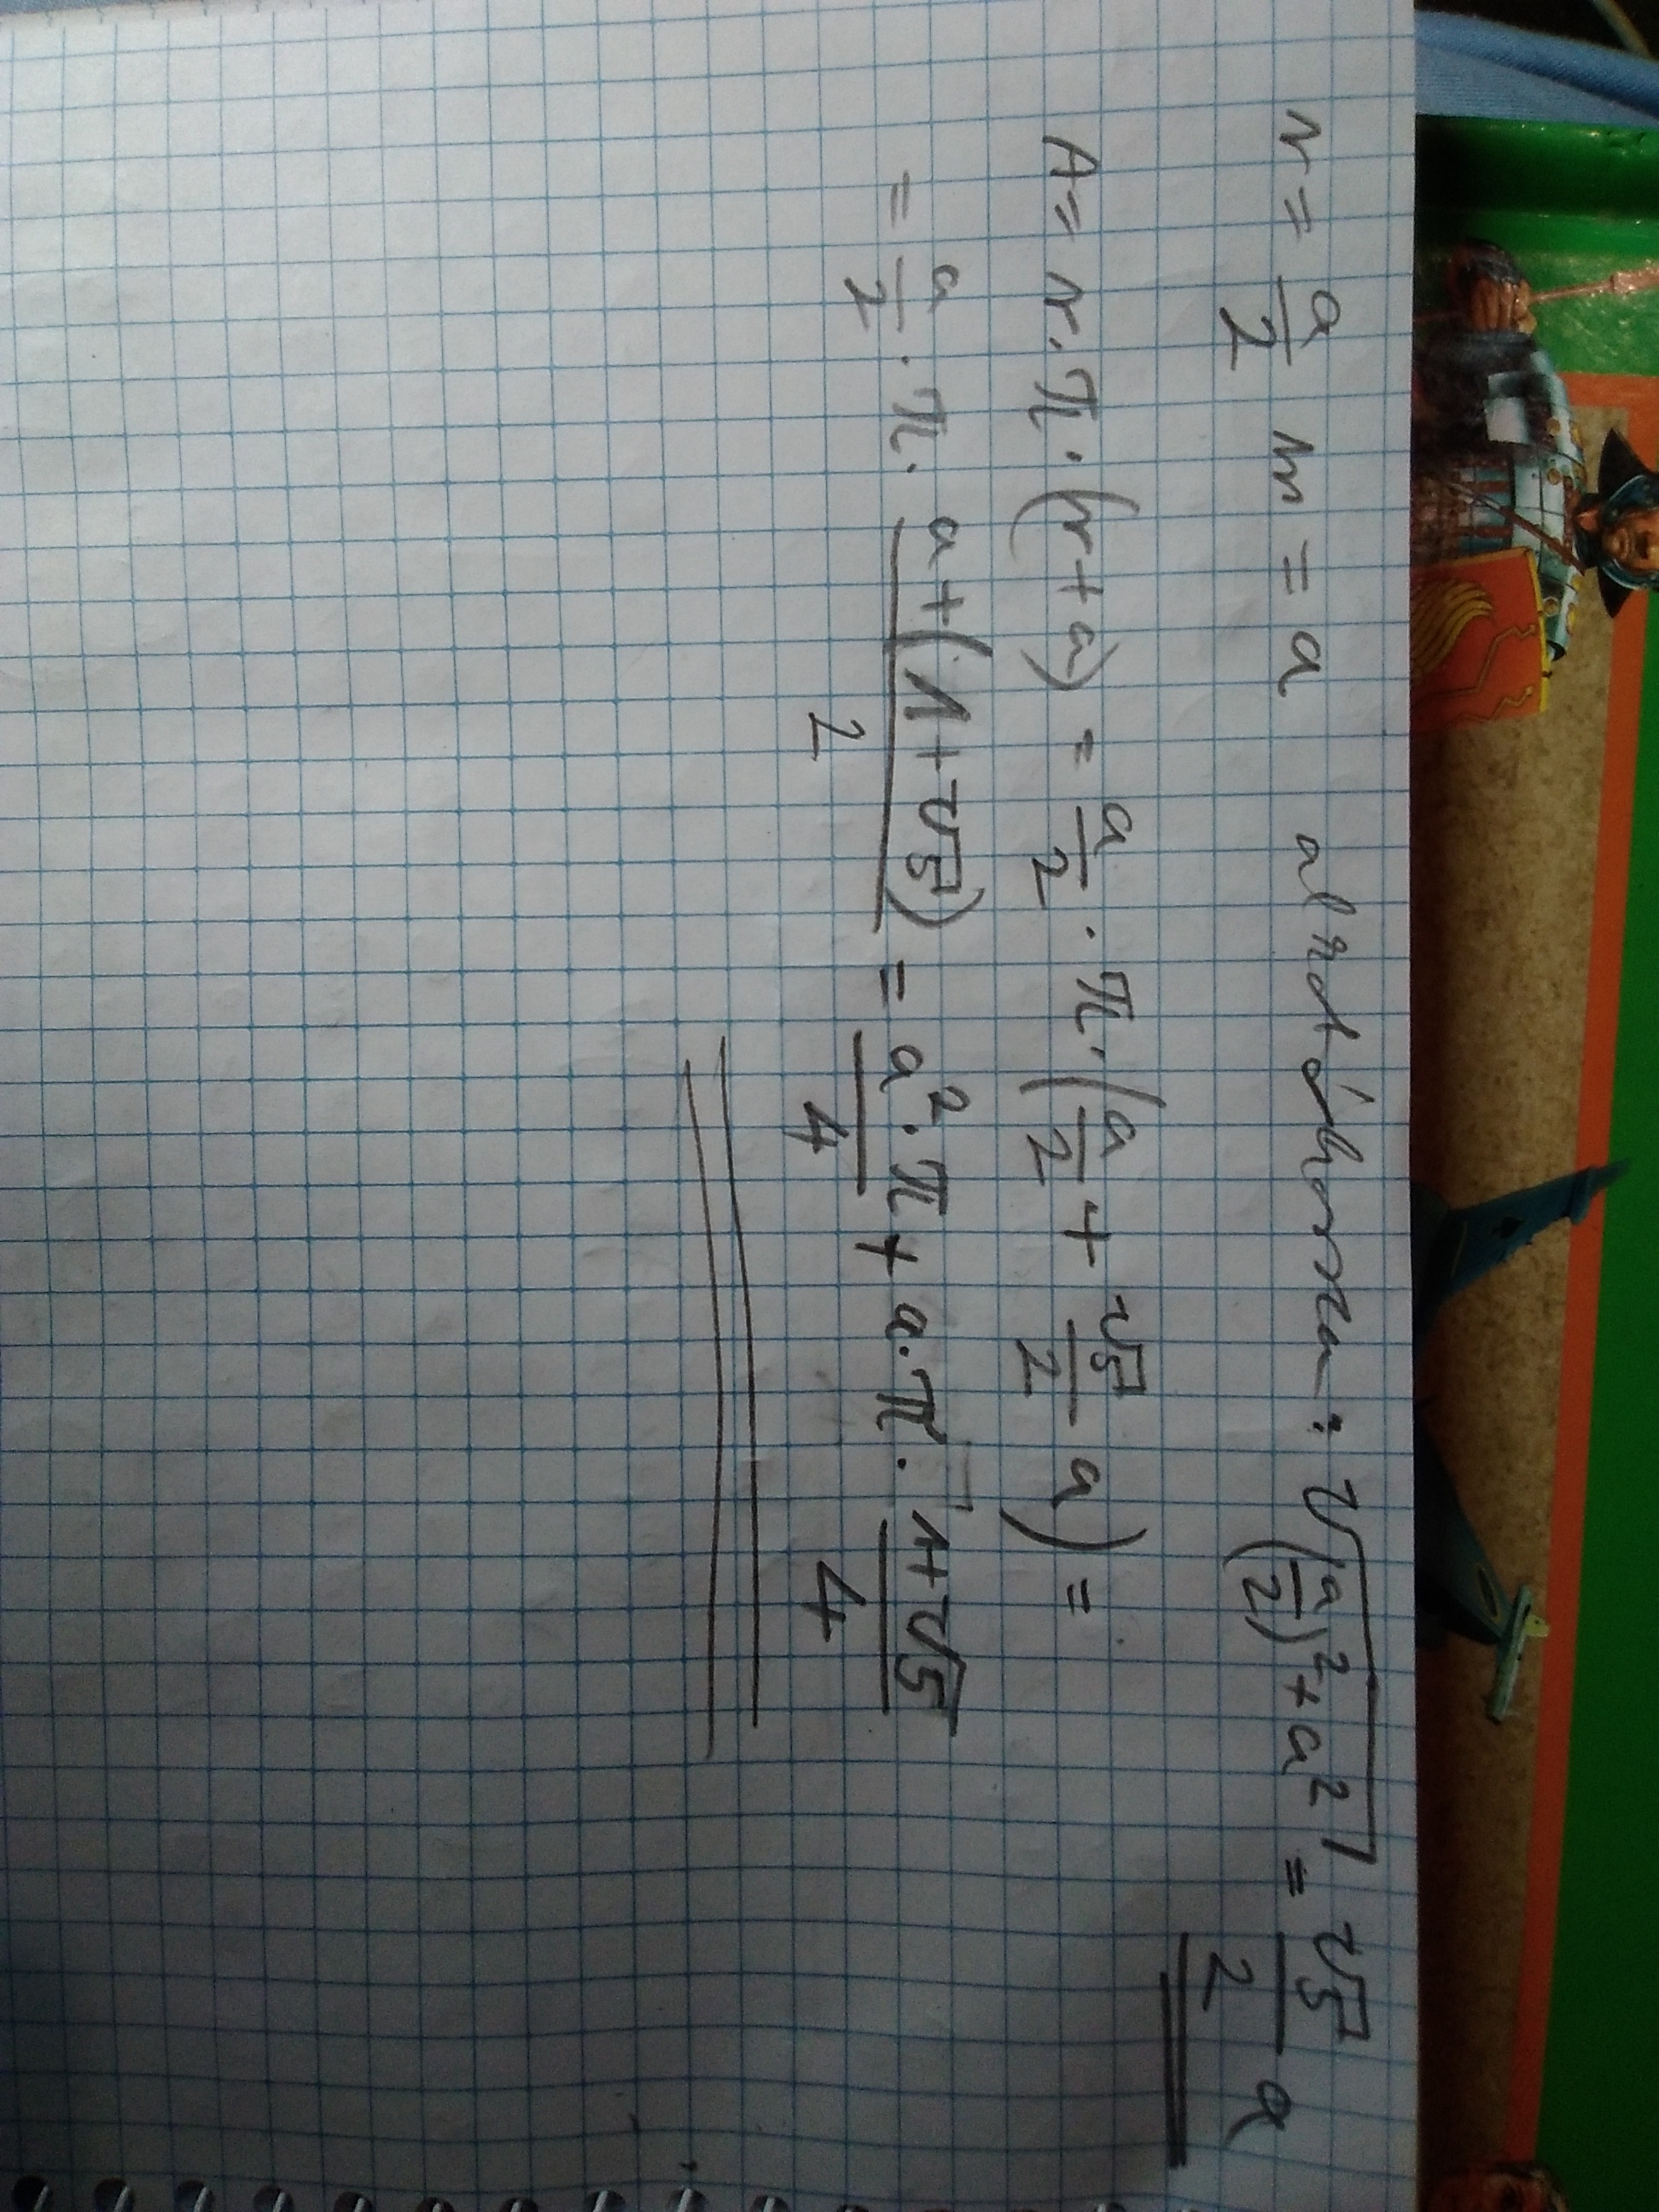 r = a/2 m = a alkotóhossza: √((a/2)² + a²) = √5/2 a
A = r·π·(r+a) = a/2 · π · (a/2 + √5/2 a) =
= a/2 · π · (a+(1+√5))/2 = a²·π/4 + a·π· (1+√5)/4